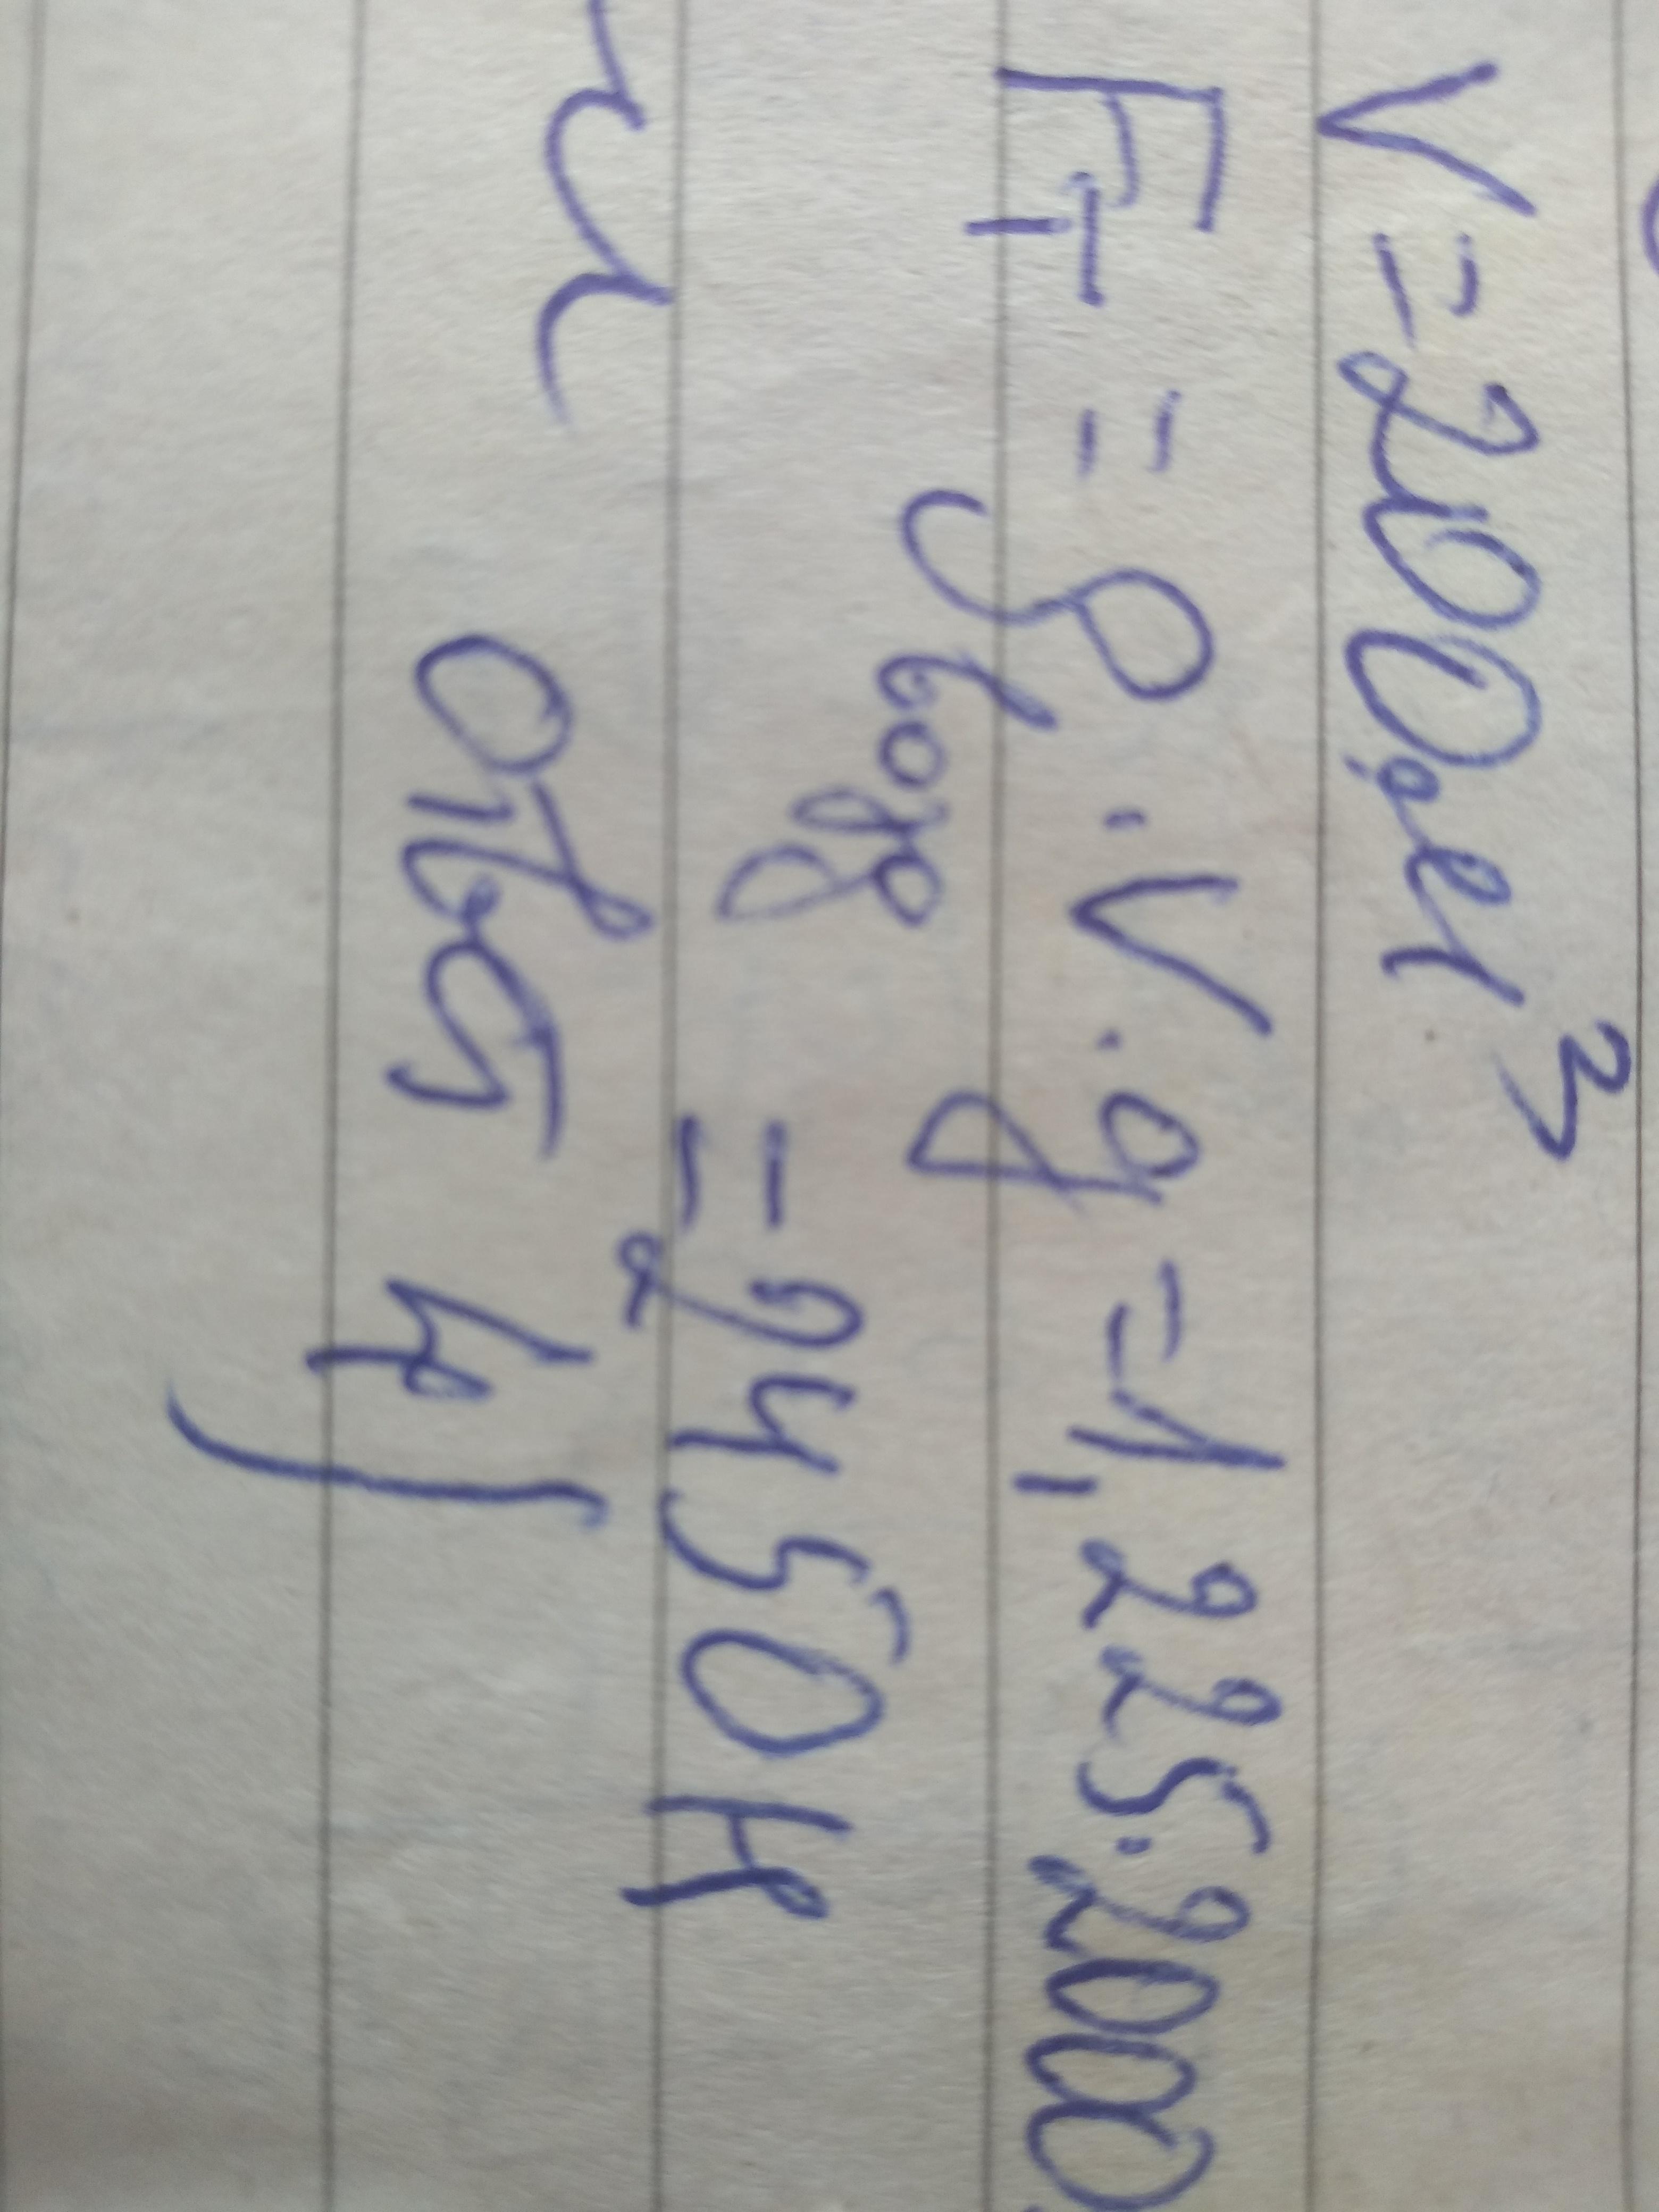 V = 200 м³
F_T = ρ_возд · V · g = 1,225 · 200
= 2450 Н
ответ 4)